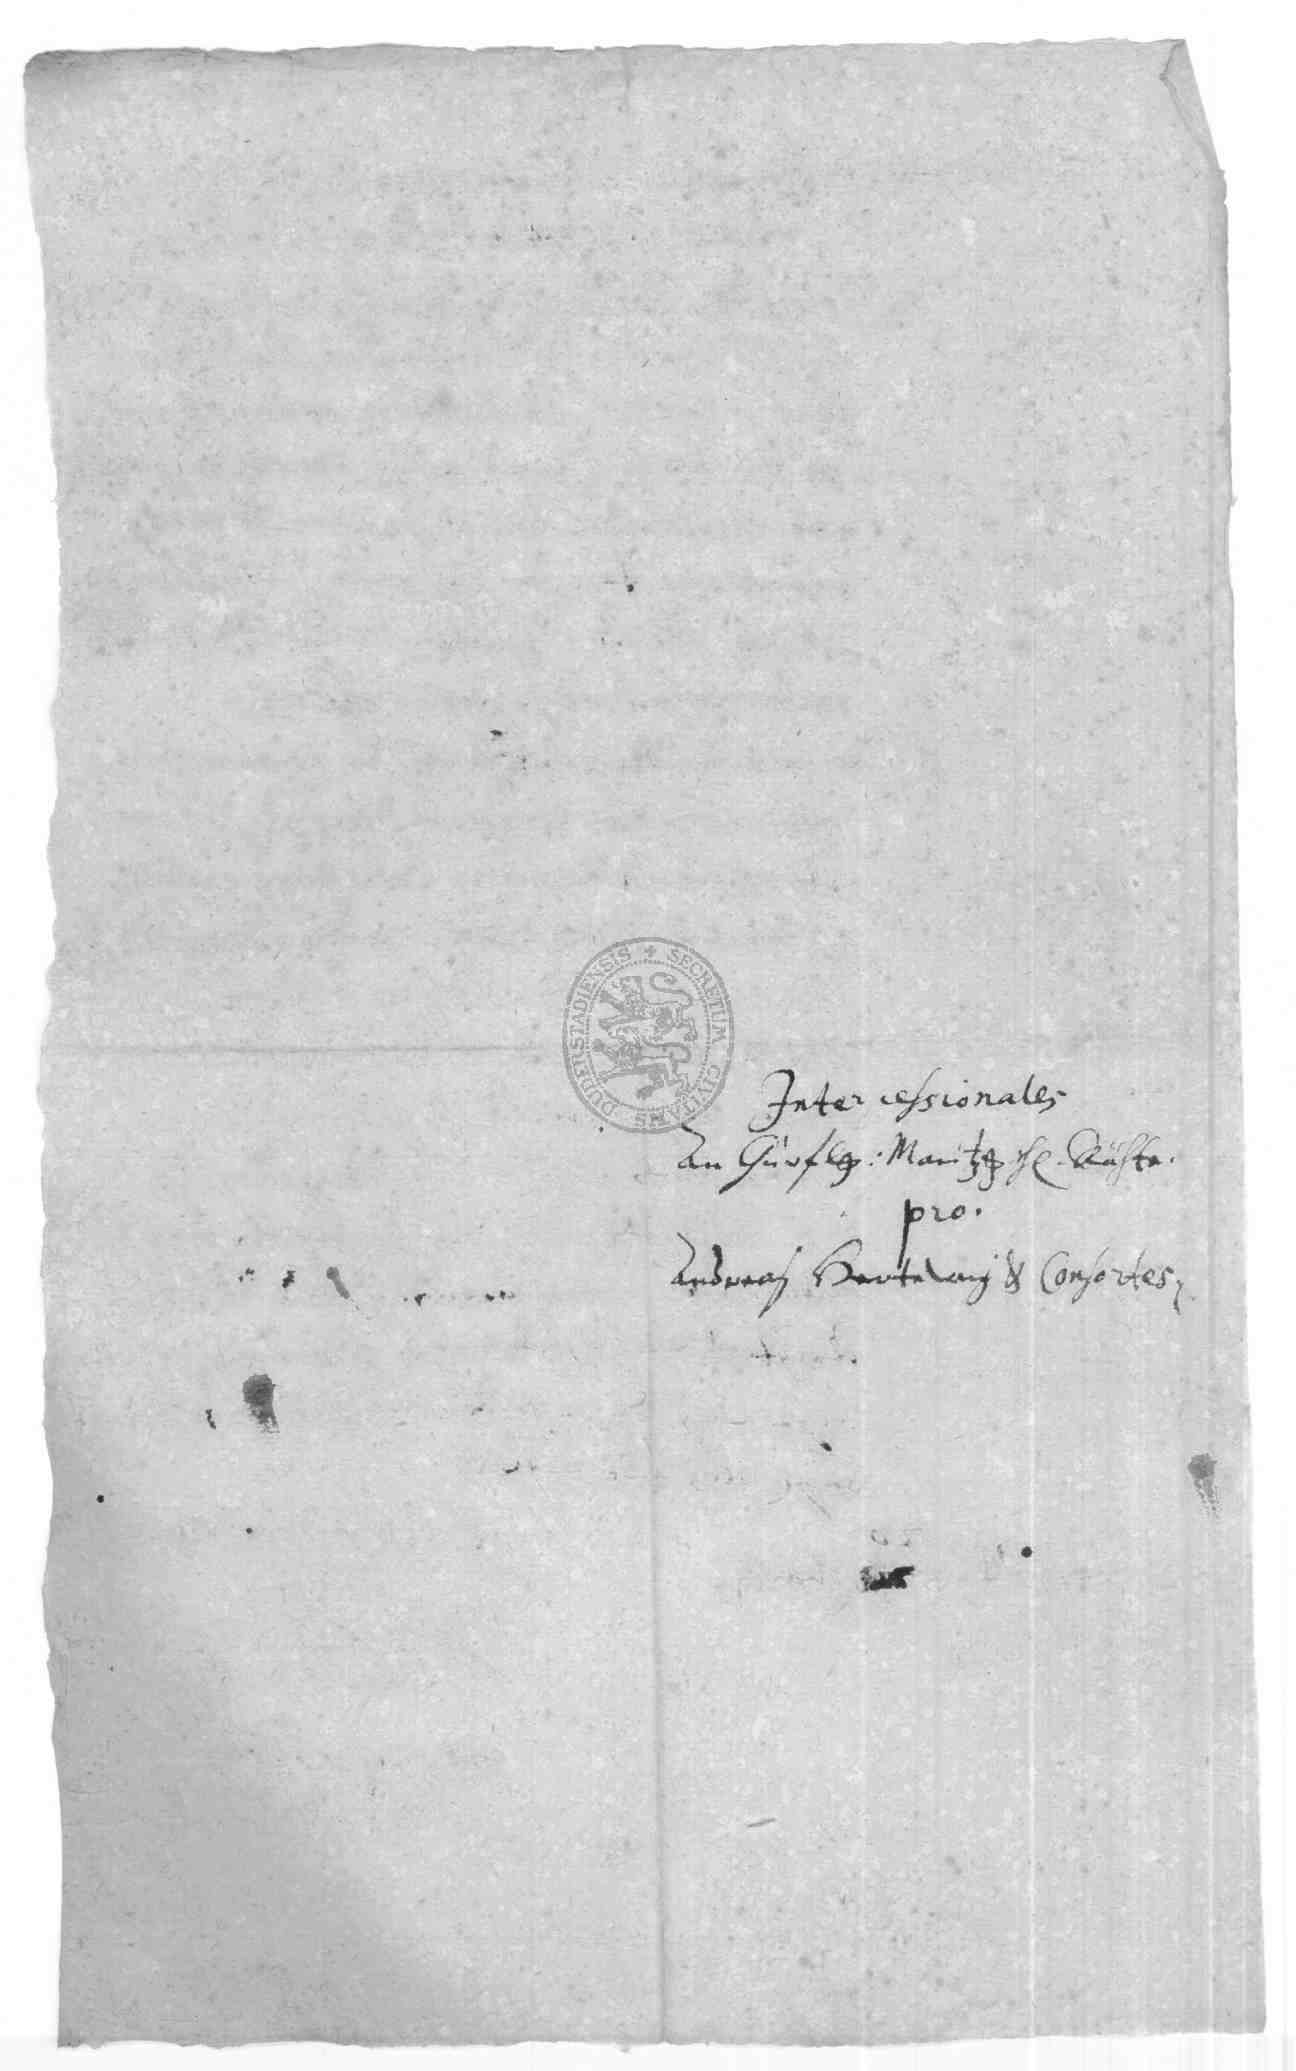 SECRETUM CIVITATIS DUDERSTADIENSIS
Intercessionales
An Churfl: Maintzische Räthe.
pro.
Andreas Hartwig & Consortes